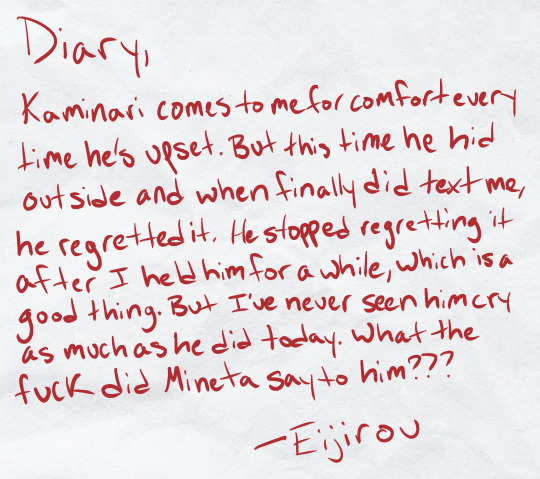 Diary,
Kaminari comes to me for comfort every
time he's upset. But this time he hid
outside and when finally did text me,
he regretted it. He stopped regretting it
after I held him for a while, which is a
good thing. But I've never seen him cry
as much as he did today. What the
fuck did Mineta say to him???
—Eijirou